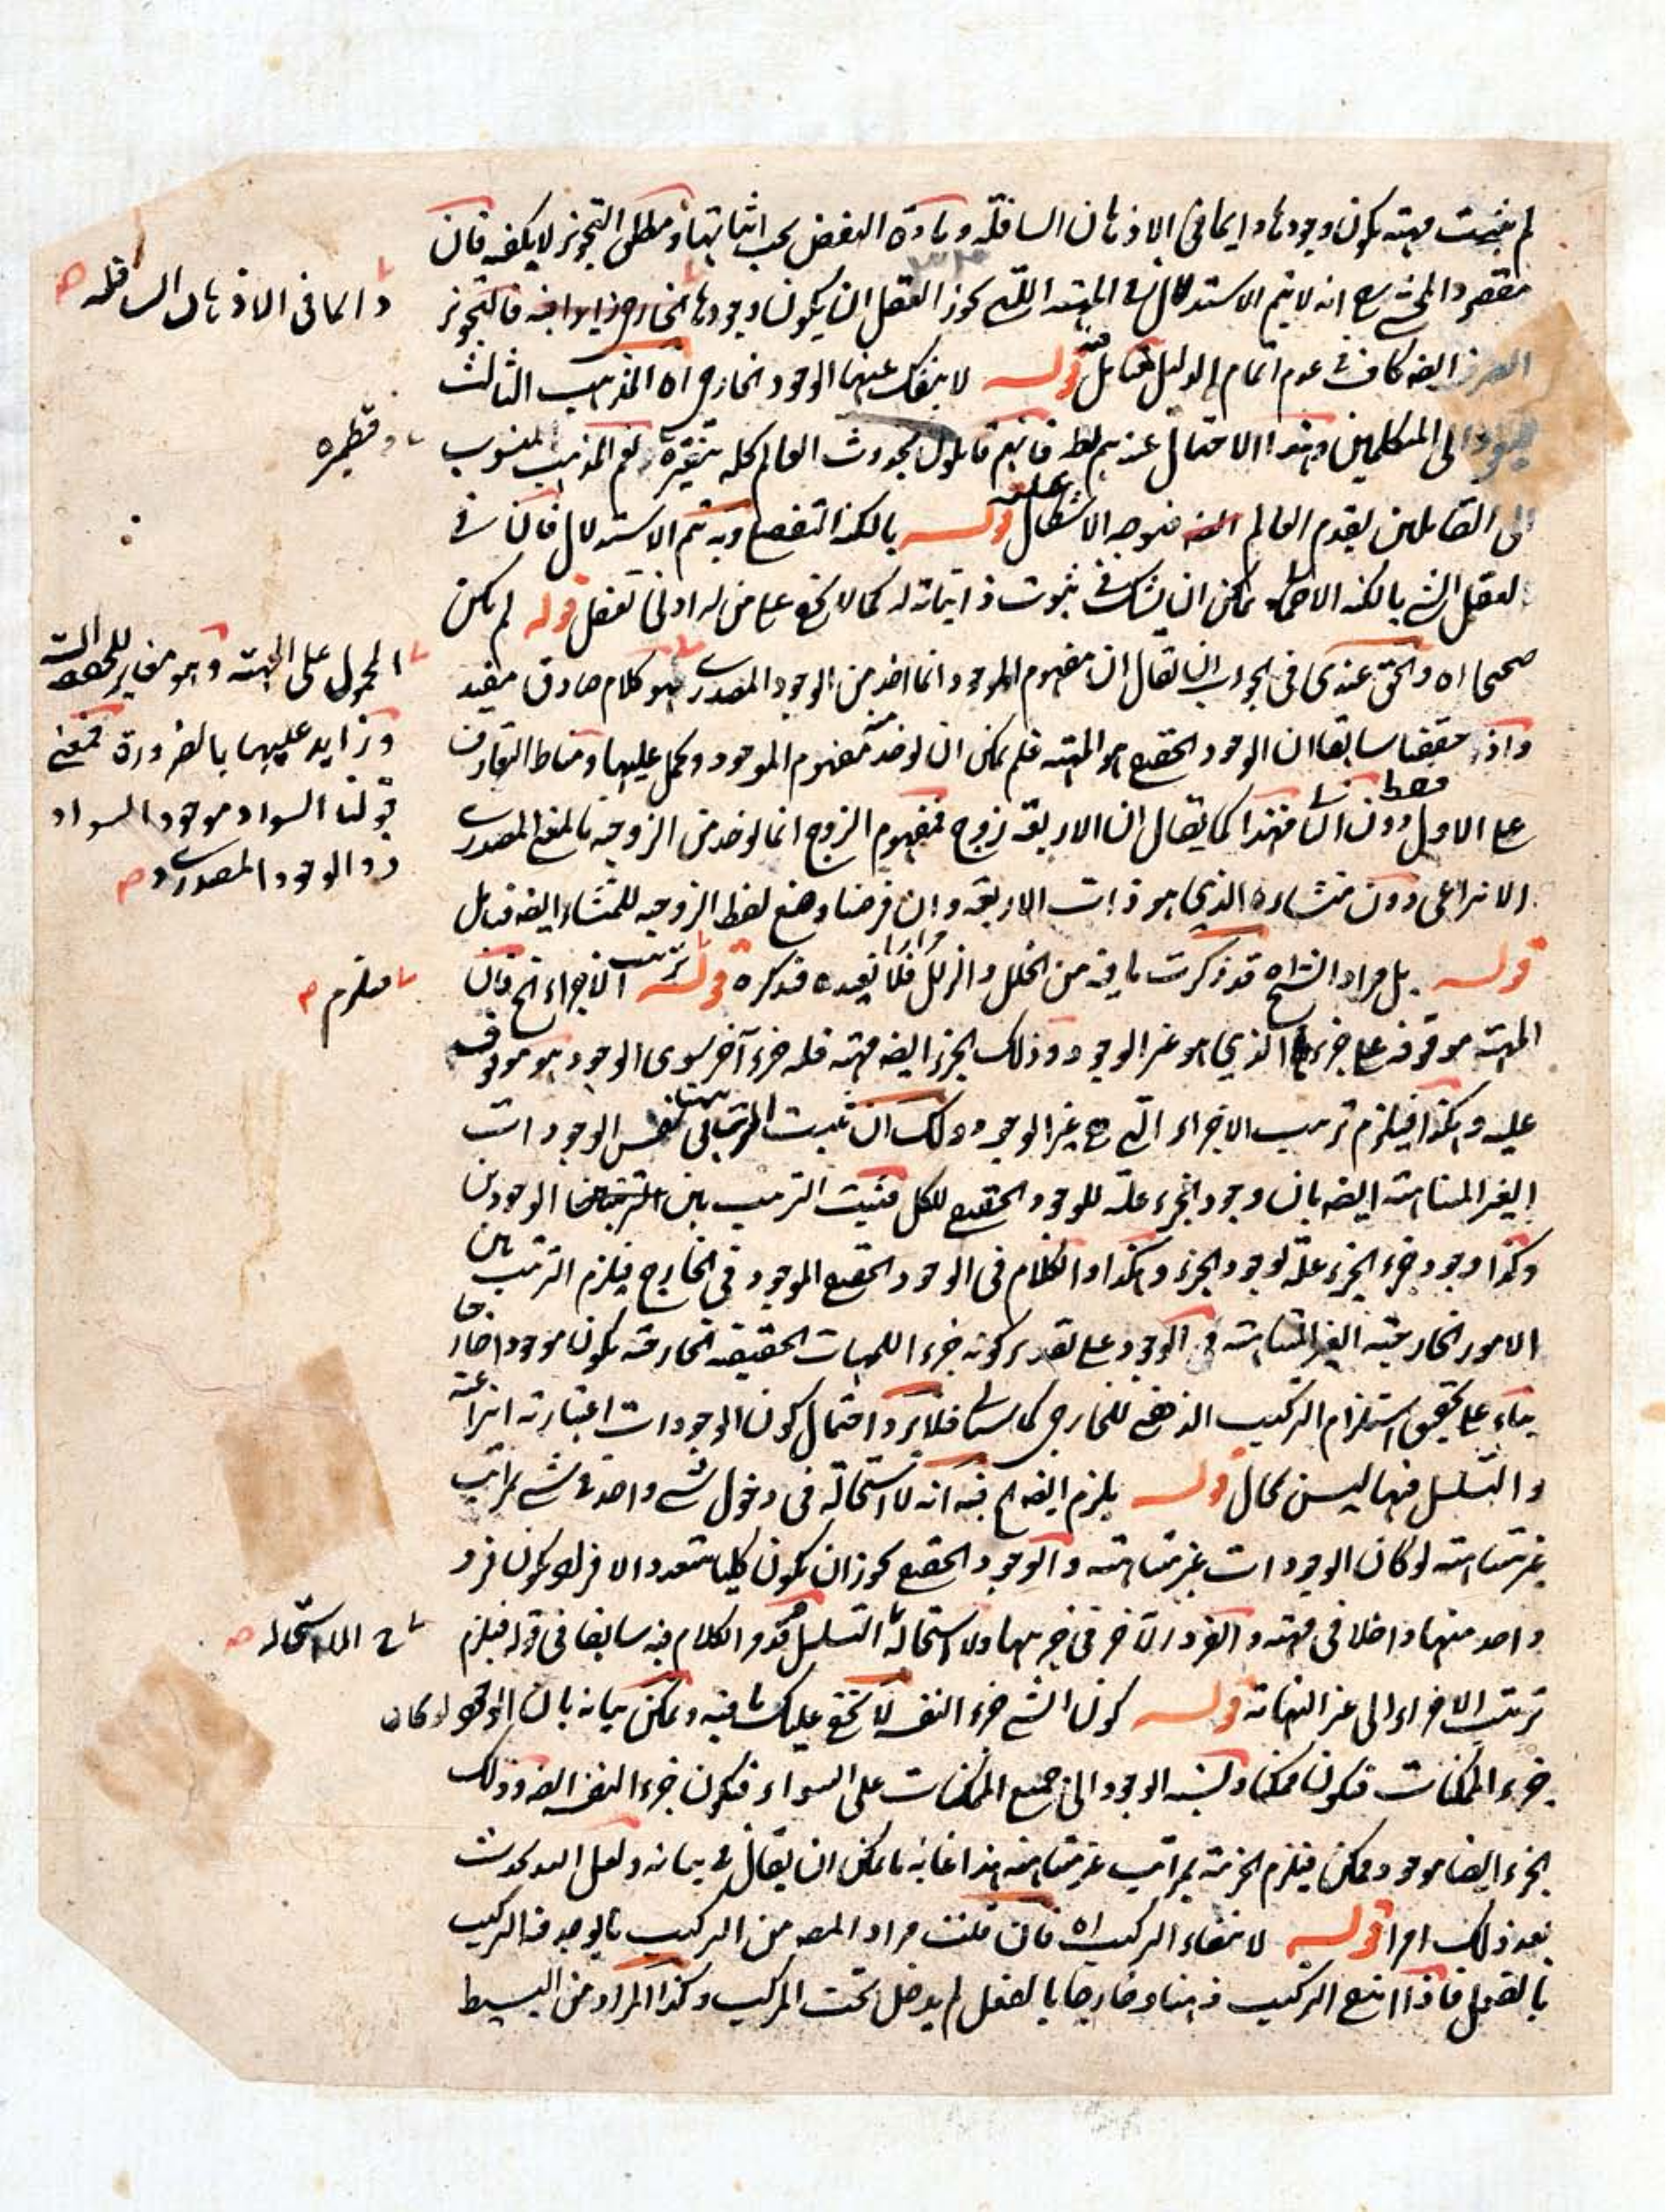 لم يثبت مهية يكون وجودها دايما في الاذهان السافلة ومادة النقض يجب اثباتها ومطلق التجويز لا يكفيه فان
مقصود المحشي انه لا يتم الاستدلال في المهية اللتي يجوز العقل ان يكون وجودها فالتجويز
دايما في الاذهان السافله صح
الصرف ايضه كاف في عدم اتمام الدليل فتامل قوله لا ينفك عنها الوجود الخارجي اه المذهب الثالث
الى المتكلمين وهذا الاحتمال عندهم بط فانهم قايلون بحدوث العالم كله نعم المذهب المنسوب
وقطميره
الى القايلين بقدم العالم فتوجه الاشكال عليه قوله بالكنه التفصيلي وبه تم الاستدلال فان في
تعقل الشي بالكنه الاجمالي يمكن ان يشك في ثبوت ذاتياته له كما لا يخفى على من له ادنى تعقل قوله لم يكن
صحيحا اه والحق عندي في الجواب ان يقال ان مفهوم الموجود انما اخذ من الوجود المصدري فهو كلام صادق مفيد
المحمول على المهية وهو مغاير للمهية
وزايد عليها بالضرورة فمعنى
قولنا السواد موجود السواد
ذو الوجود المصدري صح
واذ حققنا سابقا ان الوجود الحقيقي هو المهية فلم يمكن ان يوخذ منه مفهوم الموجود ويحمل عليها ومناط التعارف
على الاول دون الثاني فقط فهذا كما يقال ان الاربعة زوج فمفهوم الزوج انما يوخذ من الزوجية بالمعنى المصدري
الانتزاعي دون منشاءه الذي هو ذات الاربعة وان فرضنا وضع لفظ الزوجيه للمنشاء ايضه فتامل
قوله بل مراد الشارح اه قد ذكرت ما فيه من الخلل والزلل مرارا فلا نعيده فتذكره قوله ترتب الاجزاء الخ فان
ملزم صح
المهية موقوفة على جزءها الذي هو غير الوجود وذلك الجزء ايضه مهية فله جزء آخر سوى الوجود هو موقوف
عليه وهكذا فيلزم ترتب الاجزاء التي هي غير الوجود ولك ان تثبت الترتيب في نفس الوجودات
الغير المتناهية ايضه بان وجود الجزء علة للوجود الحقيقي للكل فيثبت الترتب بين الوجودين
وكذا وجود جزء الجزء علة لوجود الجزء وهكذا والكلام في الوجود الحقيقي الموجود في الخارج فيلزم الترتب بين
الامور الخارجية الغير المتناهية في الوجود على تقدير كونه جزءا للمهيات الحقيقية الخارجية يكون موجودا خارجا
بناء على تحقيق استلزام التركيب الذهني للخارجي كما سياتي فلا يرد احتمال كون الوجودات اعتبارية انتزاعية
والتسلسل فيها ليس بمحال قوله يلزم ايضه الخ فيه انه لا استحالة في دخول شي واحد في شي بمراتب
غير متناهية لو كان الوجودات غير متناهية والوجود الحقيقي يجوز ان يكون كليا متعدد الافراد يكون فرد
واحد منها داخلا في مهية والفرد الآخر في جزءها ولا استحالة التسلسل فقد مر الكلام فيه سابقا في قوله فيلزم
الاستحاله صح
ترتب الاجزاء الى غير النهاية قوله كون الشي جزء النفسه لا يخفى عليك ما فيه ويمكن بيانه بان الوجود لو كان
جزء الممكنات فيكون ممكنا ونسبة الوجود الى جميع الممكنات على السواء فيكون جزءا لنفسه ايضه وذلك
الجزء ايضا موجود ممكن فيلزم الجزئية بمراتب غير متناهية هذا غاية ما يمكن ان يقال في بيانه ولعل الله يحدث
بعد ذلك امرا قوله لانتفاء التركيب اه فان قلت مراد المصه من التركيب ما يوجد فيه التركيب
بالفعل فاذا انتفى التركيب ذهنا وخارجا بالفعل لم يدخل تحت المركب وكذا المراد من البسيط